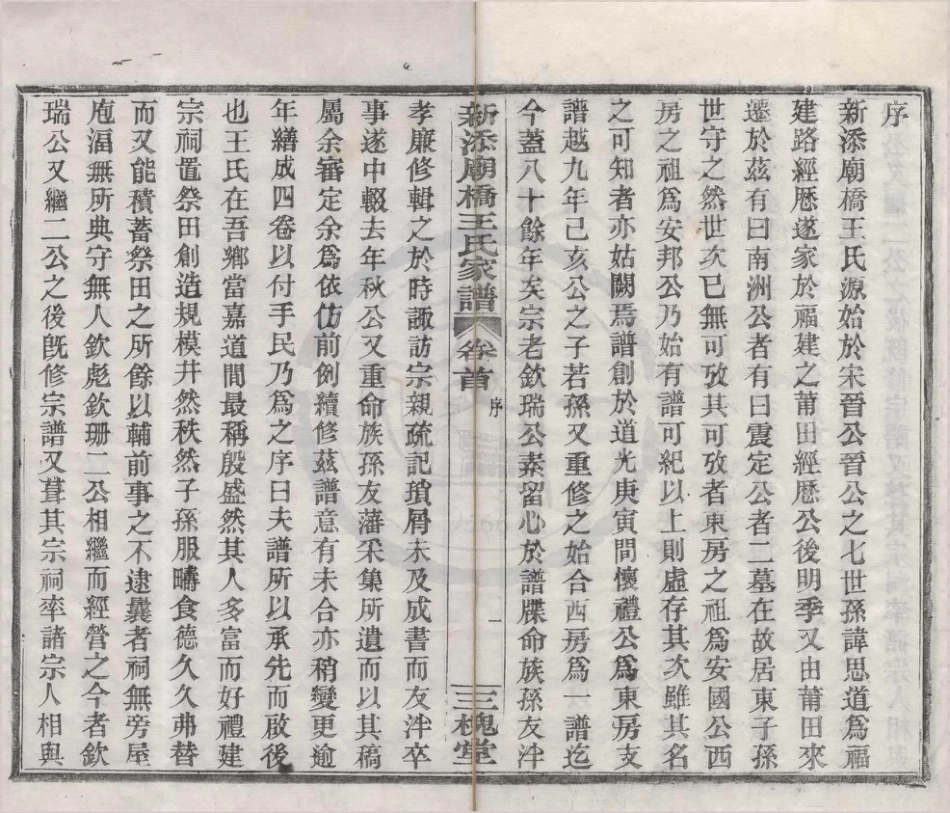 序
新添廟橋王氏源始於宋晉公晉公之七世孫諱思道爲福
建路經歷遂家於福建之莆田經歷公後明季又由莆田來
遷於茲有曰南洲公者有曰震定公者二墓在故居東子孫
世守之然世次已無可攷其可攷者東房之祖爲安國公西
房之祖爲安邦公乃始有譜可紀以上則虛存其次雖其名
之可知者亦姑闕焉譜創於道光庚寅間懷禮公爲東房支
譜越九年己亥公之子若孫又重修之始合西房爲一譜迄
今蓋八十餘年矣宗老欽瑞公素留心於譜牒命族孫友泮
新添廟橋王氏家譜 卷首 序 一 三槐堂
孝廉修輯之於時諏訪宗親疏記瑣屑未及成書而友泮卒
事遂中輟去年秋公又重命族孫友藩采集所遺而以其稿
屬余審定余爲依仿前例續修茲譜意有未合亦稍變更逾
年繕成四卷以付手民乃爲之序曰夫譜所以承先而啟後
也王氏在吾鄉當嘉道間最稱殷盛然其人多富而好禮建
宗祠置祭田創造規模井然秩然子孫服疇食德久久弗替
而又能積蓄祭田之所餘以輔前事之不逮曩者祠無旁屋
庖湢無所典守無人欽彪欽珊二公相繼而經營之今者欽
瑞公又繼二公之後既修宗譜又葺其宗祠率諸宗人相與